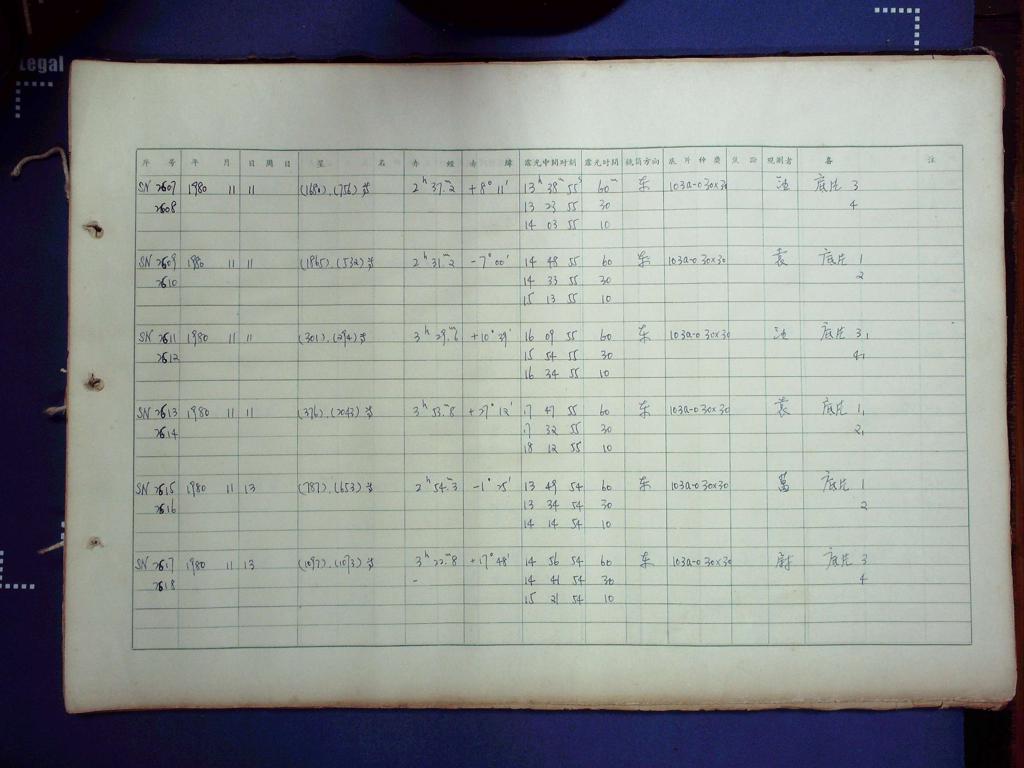 Legal
序号 年 月 日 周日 星 名 赤 經 赤 緯 露光中間时刻 露光时間 鏡筒方向 底片种类 观測者 备 注
SN 7607 1980 11 11 (1680).(756)等 2ʰ 37ᵐ.2 +8° 11′ 13ʰ 38ᵐ 55ˢ 60ᵐ 东 103a-o 30×30 底片 3
7608 13 23 55 30 4
14 03 55 10
SN 7609 1980 11 11 (1865).(532)等 2 31.2 -7° 00′ 14 48 55 60 东 103a-o 30×30 袁 底片 1
7610 14 33 55 30 2
15 13 55 10
SN 7611 1980 11 11 (301).(294)等 3ʰ 29ᵐ.6 +10° 39′ 16 09 55 60 东 103a-o 30×30 底片 3,
7612 15 54 55 30 4,
16 34 55 10
SN 7613 1980 11 11 (376).(2043)等 3ʰ 53.8 +27° 12′ 17 47 55 60 东 103a-o 30×30 袁 底片 1,
7614 17 32 55 30 2,
18 12 55 10
SN 7615 1980 11 13 (787).(653)等 2ʰ 54ᵐ.3 -1° 25′ 13 49 54 60 东 103a-o 30×30 底片 1
7616 13 34 54 30 2
14 14 54 10
SN 7617 1980 11 13 (1097).(1073)等 3ʰ 22ᵐ.8 +17° 48′ 14 56 54 60 东 103a-o 30×30 尉 底片 3
7618 - 14 41 54 30 4
15 21 54 10